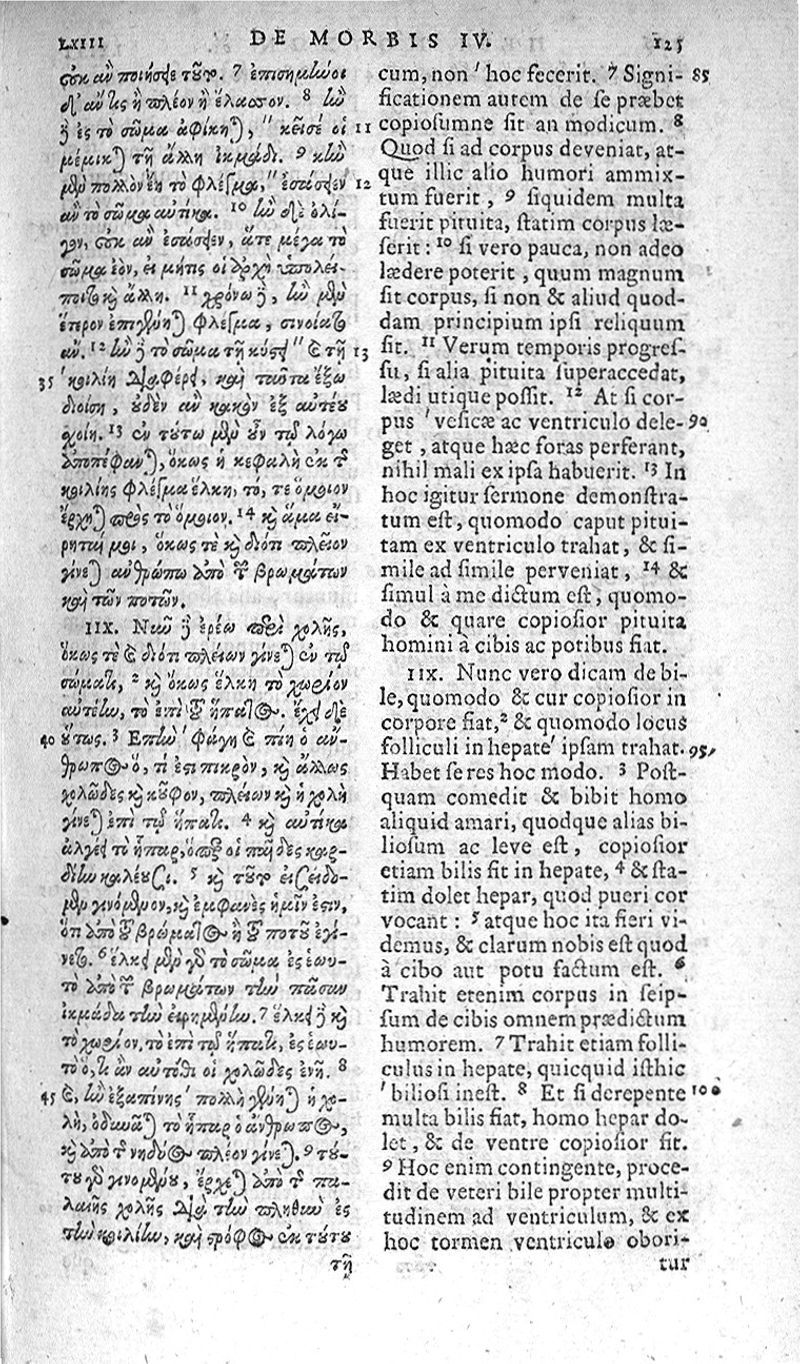 LXIII DE MORBIS IV. 125
οὐκ ἂν ποιήσειε τοῦτο. 7 ἐπισημαίνοι
δ' ἄν τις ἢ πλέον ἢ ἔλασσον. 8 ἢν
δὲ ἐς τὸ σῶμα ἀφίκηται, " κεῖσέ οἱ 11
μέμικται τῇ ἄλλῃ ἰκμάδι. 9 κἢν
μὲν πολλὸν ἔῃ τὸ φλέγμα, " ἐσίσειεν 12
ἂν τὸ σῶμα αὐτίκα. 10 ἢν δὲ ὀλί-
γον, οὐκ ἂν ἐσίσειεν, ἅτε μέγα τὸ
σῶμα ἐὸν, εἰ μήτις οἱ ἀρχὴ ὑπολεί-
ποιτο καὶ ἄλλη. 11 χρόνῳ δὲ, ἢν μὲν
ἕτερον ἐπιγένηται φλέγμα, σινοίατο
ἄν. 12 ἢν δὲ τὸ σῶμα τῇ κύστει " καὶ τῇ 13
35 ' κοιλίῃ διαφέρει, καὶ ταῦτα ἔξω
διοίσῃ, οὐδὲν ἂν κακὸν ἐξ αὐτέου
σχοίη. 13 ἐν τούτῳ μὲν οὖν τῷ λόγῳ
ἀποπέφανται, ὅκως ἡ κεφαλὴ ἐκ τῆς
κοιλίης φλέγμα ἕλκῃ, τό, τε ὅμοιον
ἔρχηται πρὸς τὸ ὅμοιον. 14 καὶ ἅμα εἴ-
ρηταί μοι, ὅκως τὲ καὶ διότι πλεῖον
γίνεται ἀνθρώπῳ ἀπὸ τῶν βρωμάτων
καὶ τῶν ποτῶν.
IIX. Νῦν δὲ ἐρέω περὶ χολῆς,
ὅκως τὲ καὶ διότι πλείων γίνεται ἐν τῷ
σώματι, 2 καὶ ὅκως ἕλκῃ τὸ χωρίον
αὐτέην, τὸ ἐπὶ τοῦ ἥπατος. ἔχει δὲ
40 οὕτως. 3 Ἐπὴν ' φάγῃ καὶ πίῃ ὁ ἄν-
θρωπος ὅ, τί ἐστι πικρὸν, καὶ ἄλλως
χολῶδες καὶ κοῦφον, πλείων καὶ ἡ χολὴ
γίνεται ἐπὶ τῷ ἥπατι. 4 καὶ αὐτίκα
ἀλγέει τὸ ἧπαρ, ὅπερ οἱ παῖδες καρ-
δίην καλέουσι. 5 καὶ τοῦτο εἰσειδο-
μεν γινόμενον, καὶ ἐμφανὲς ἡμῖν ἐστιν,
ὅτι ἀπὸ τοῦ βρώματος ἢ τοῦ ποτοῦ ἐγί-
νετο. 6 ἕλκει μὲν γὰρ τὸ σῶμα ἐς ἑωυ-
τὸ ἀπὸ τῶν βρωμάτων τὴν πᾶσαν
ἰκμάδα τὴν εἰρημένην. 7 ἕλκει δὲ καὶ
τὸ χωρίον, τὸ ἐπὶ τῷ ἥπατι, ἐς ἑωυ-
τὸ ὅ, τι ἂν αὐτόθι οἱ χολῶδες ἐνῇ. 8
45 καὶ, ἢν ἐξαπίνης ' πολλὴ γένηται ἡ χο-
λὴ, ὀδυνᾶται τὸ ἧπαρ ὁ ἄνθρωπος,
καὶ ἀπὸ τῆς νηδύος πλέον γίνεται. 9 τού-
του γὰρ γινομένου, ἔρχεται ἀπὸ τῆς πα-
λαιῆς χολῆς διὰ τὴν πληθὺν ἐς
τὴν κοιλίην, καὶ στρόφος ἐκ τούτου
τῇ
cum, non ' hoc fecerit. 7 Signi- 85
ficationem autem de se præbet
copiosumne sit an modicum. 8
Quod si ad corpus deveniat, at-
que illic alio humori ammix-
tum fuerit, 9 siquidem multa
fuerit pituita, statim corpus læ-
serit: 10 si vero pauca, non adeo
lædere poterit, quum magnum
sit corpus, si non & aliud quod-
dam principium ipsi reliquum
sit. 11 Verum temporis progres-
su, si alia pituita superaccedat,
lædi utique possit. 12 At si cor-
pus ' vesicæ ac ventriculo dele- 90
get, atque hæc foras perferant,
nihil mali ex ipsa habuerit. 13 In
hoc igitur sermone demonstra-
tum est, quomodo caput pitui-
tam ex ventriculo trahat, & si-
mile ad simile perveniat, 14 &
simul à me dictum est, quomo-
do & quare copiosior pituita
homini à cibis ac potibus fiat.
IIX. Nunc vero dicam de bi-
le, quomodo & cur copiosior in
corpore fiat, 2 & quomodo locus
folliculi in hepate ' ipsam trahat. 95
Habet se res hoc modo. 3 Post-
quam comedit & bibit homo
aliquid amari, quodque alias bi-
liosum ac leve est, copiosior
etiam bilis fit in hepate, 4 & sta-
tim dolet hepar, quod pueri cor
vocant: 5 atque hoc ita fieri vi-
demus, & clarum nobis est quod
à cibo aut potu factum est. 6
Trahit etenim corpus in seip-
sum de cibis omnem prædictum
humorem. 7 Trahit etiam folli-
culus in hepate, quicquid isthic
' biliosi inest. 8 Et si derepente 100
multa bilis fiat, homo hepar do-
let, & de ventre copiosior fit.
9 Hoc enim contingente, proce-
dit de veteri bile propter multi-
tudinem ad ventriculum, & ex
hoc tormen ventriculo obori-
tur